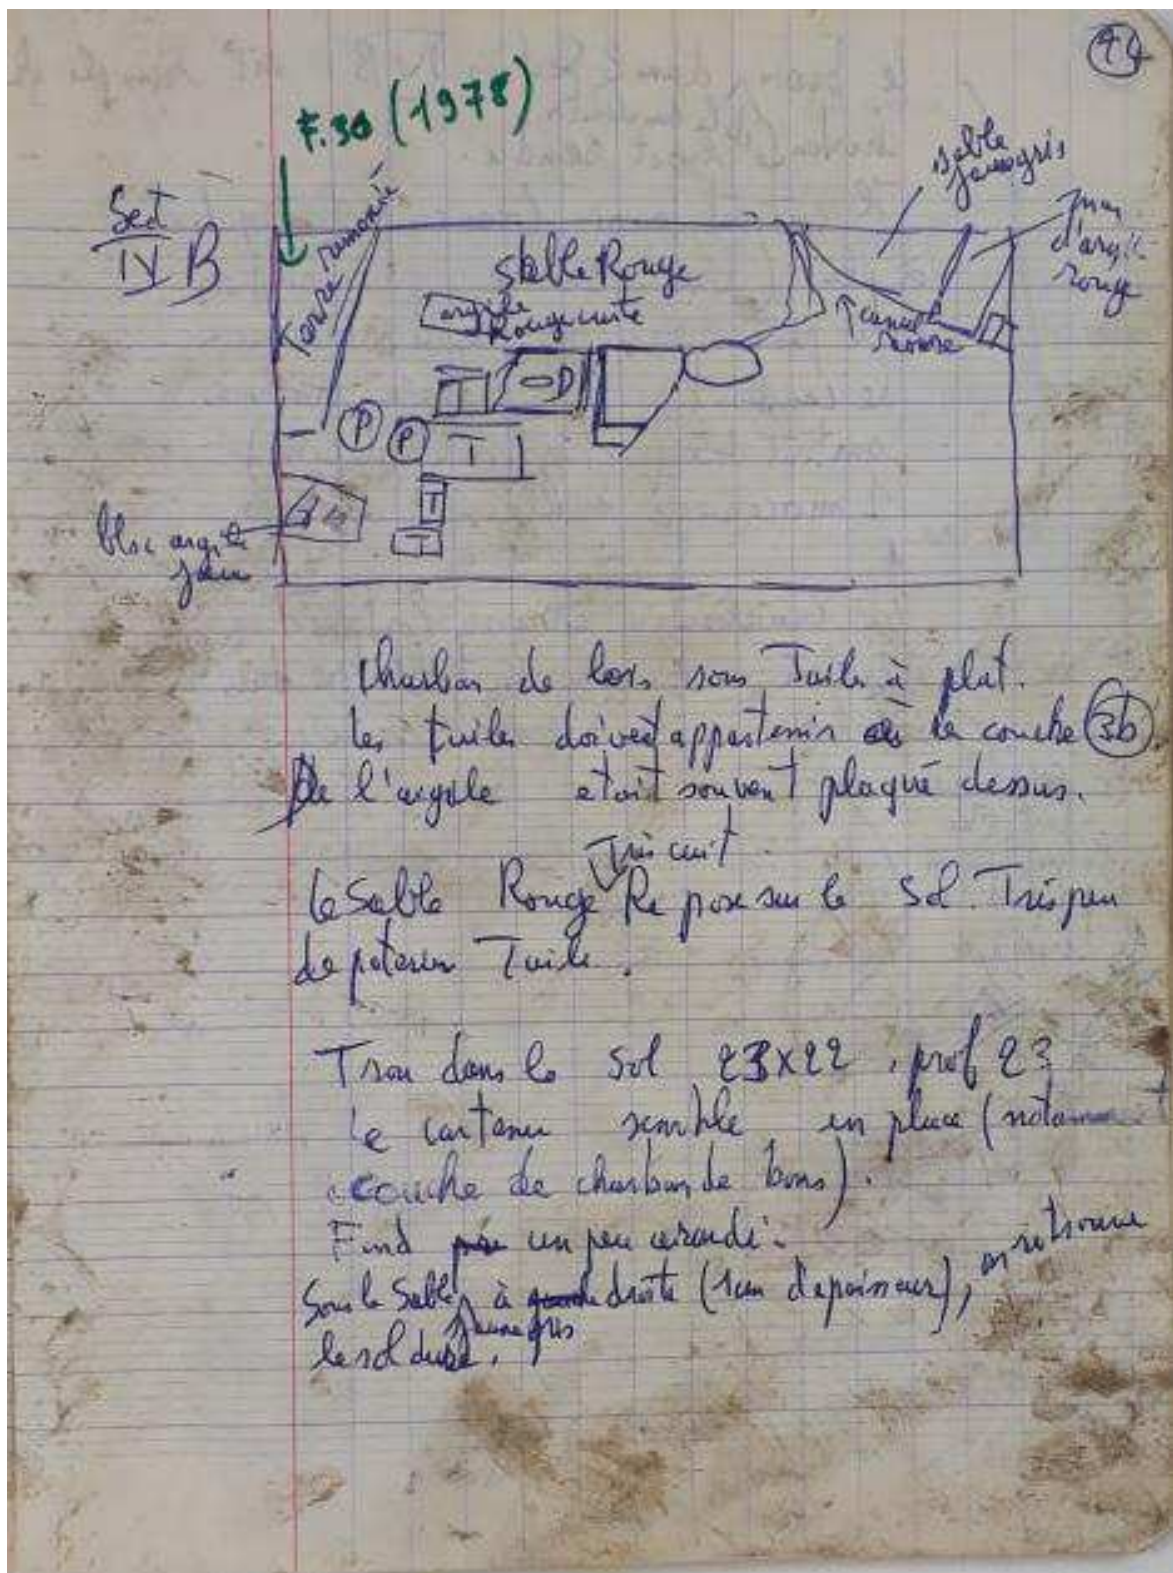 14
F.30 (1978)
Sect
IV B
Terre remaniée
sable Rouge
argile
Rouge cuite
sable
jaune gris
d'argile
rouge
canal
P
P
T
D
T
T
T
bloc argile
jaune
charbon de bois sous Tuiles à plat.
les tuiles doivent appartenir à la couche 3b
De l'argile etait souvent plaqué dessus.
Très cuit
Le Sable Rouge Repose sur le Sol. Très peu
de poterie Tuile.
Trou dans le sol 23x22, prof 23
Le contenu semble en place (notamment
couche de charbon de bois).
Fond un peu arrondi.
Sous le Sable jaune gris à droite (1cm d'epaisseur), on retrouve
le sol